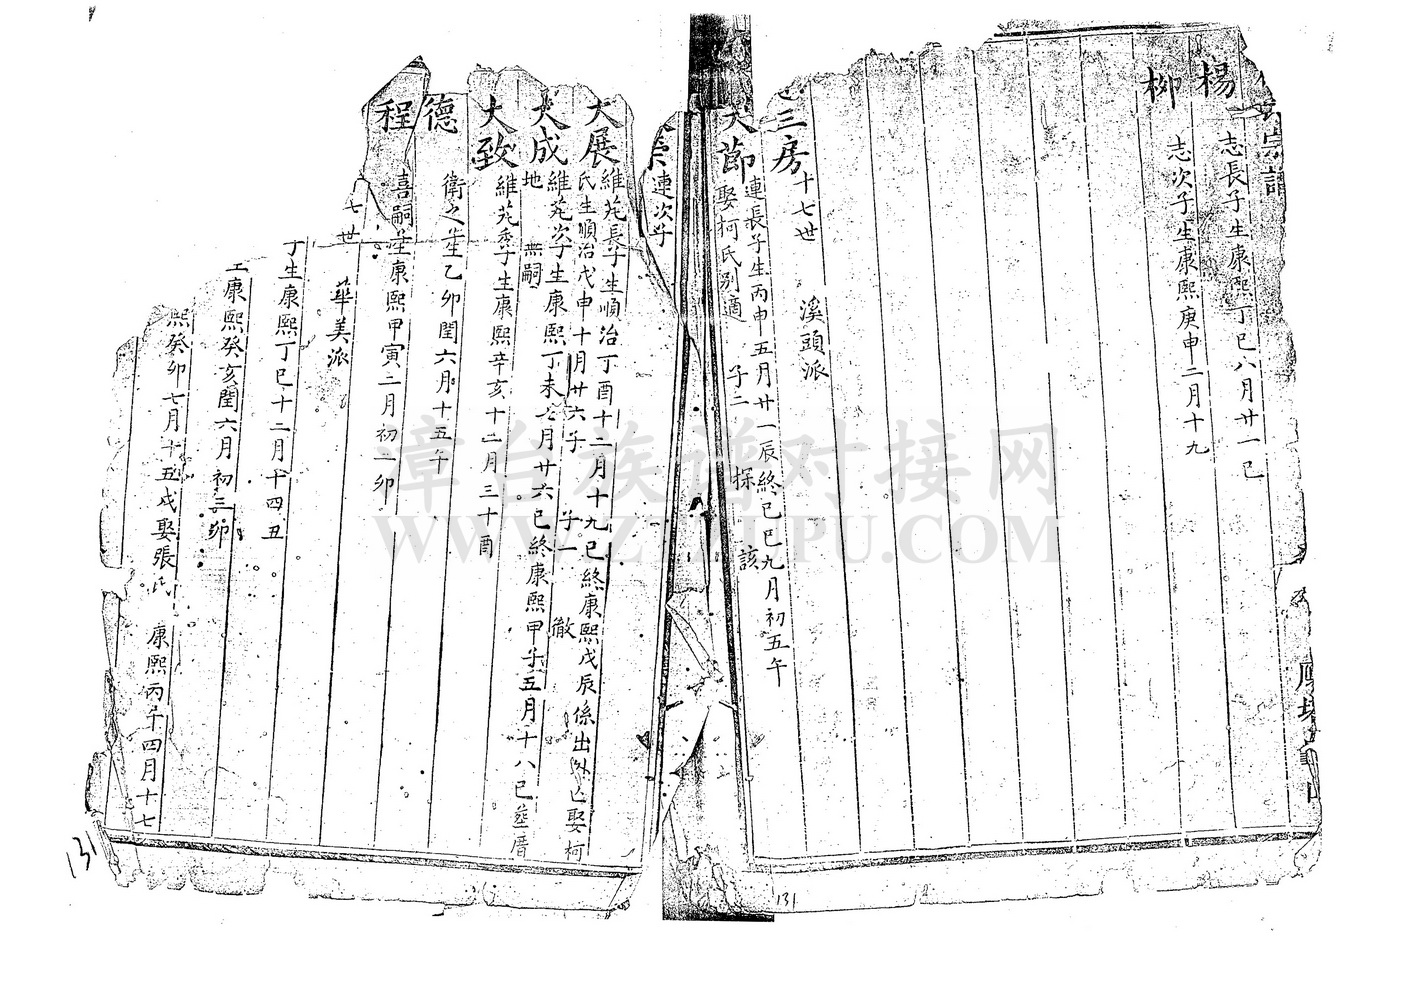 宗譜
楊 志長子生康熙丁巳八月廿一巳
柳 志次子生康熙庚申二月十九
三房
十七世 溪頭派
大節 連長子生丙申五月廿一辰終己巳九月初五午
娶柯氏別適 子二 探 該
連次子
大展 維芘長子生順治丁酉十二月十九巳終康熙戊辰係出外亡娶柯
氏生順治戊申十月廿六子 子一 徹
大成 維芘次子生康熙丁未七月廿六巳終康熙甲子五月十八巳塟厝
地 無嗣
大致 維芘季子生康熙辛亥十二月三十酉
德 衛之 生乙卯閏六月十五午
程 喜嗣 生康熙甲寅二月初一卯
七世 華美派
丁生康熙丁巳十二月十四丑
康熙癸亥閏六月初三卯
熙癸卯七月十五戌娶張氏 康熙丙午四月十七
131
131
漳台族谱对接网
WWW.ZTZUPU.COM